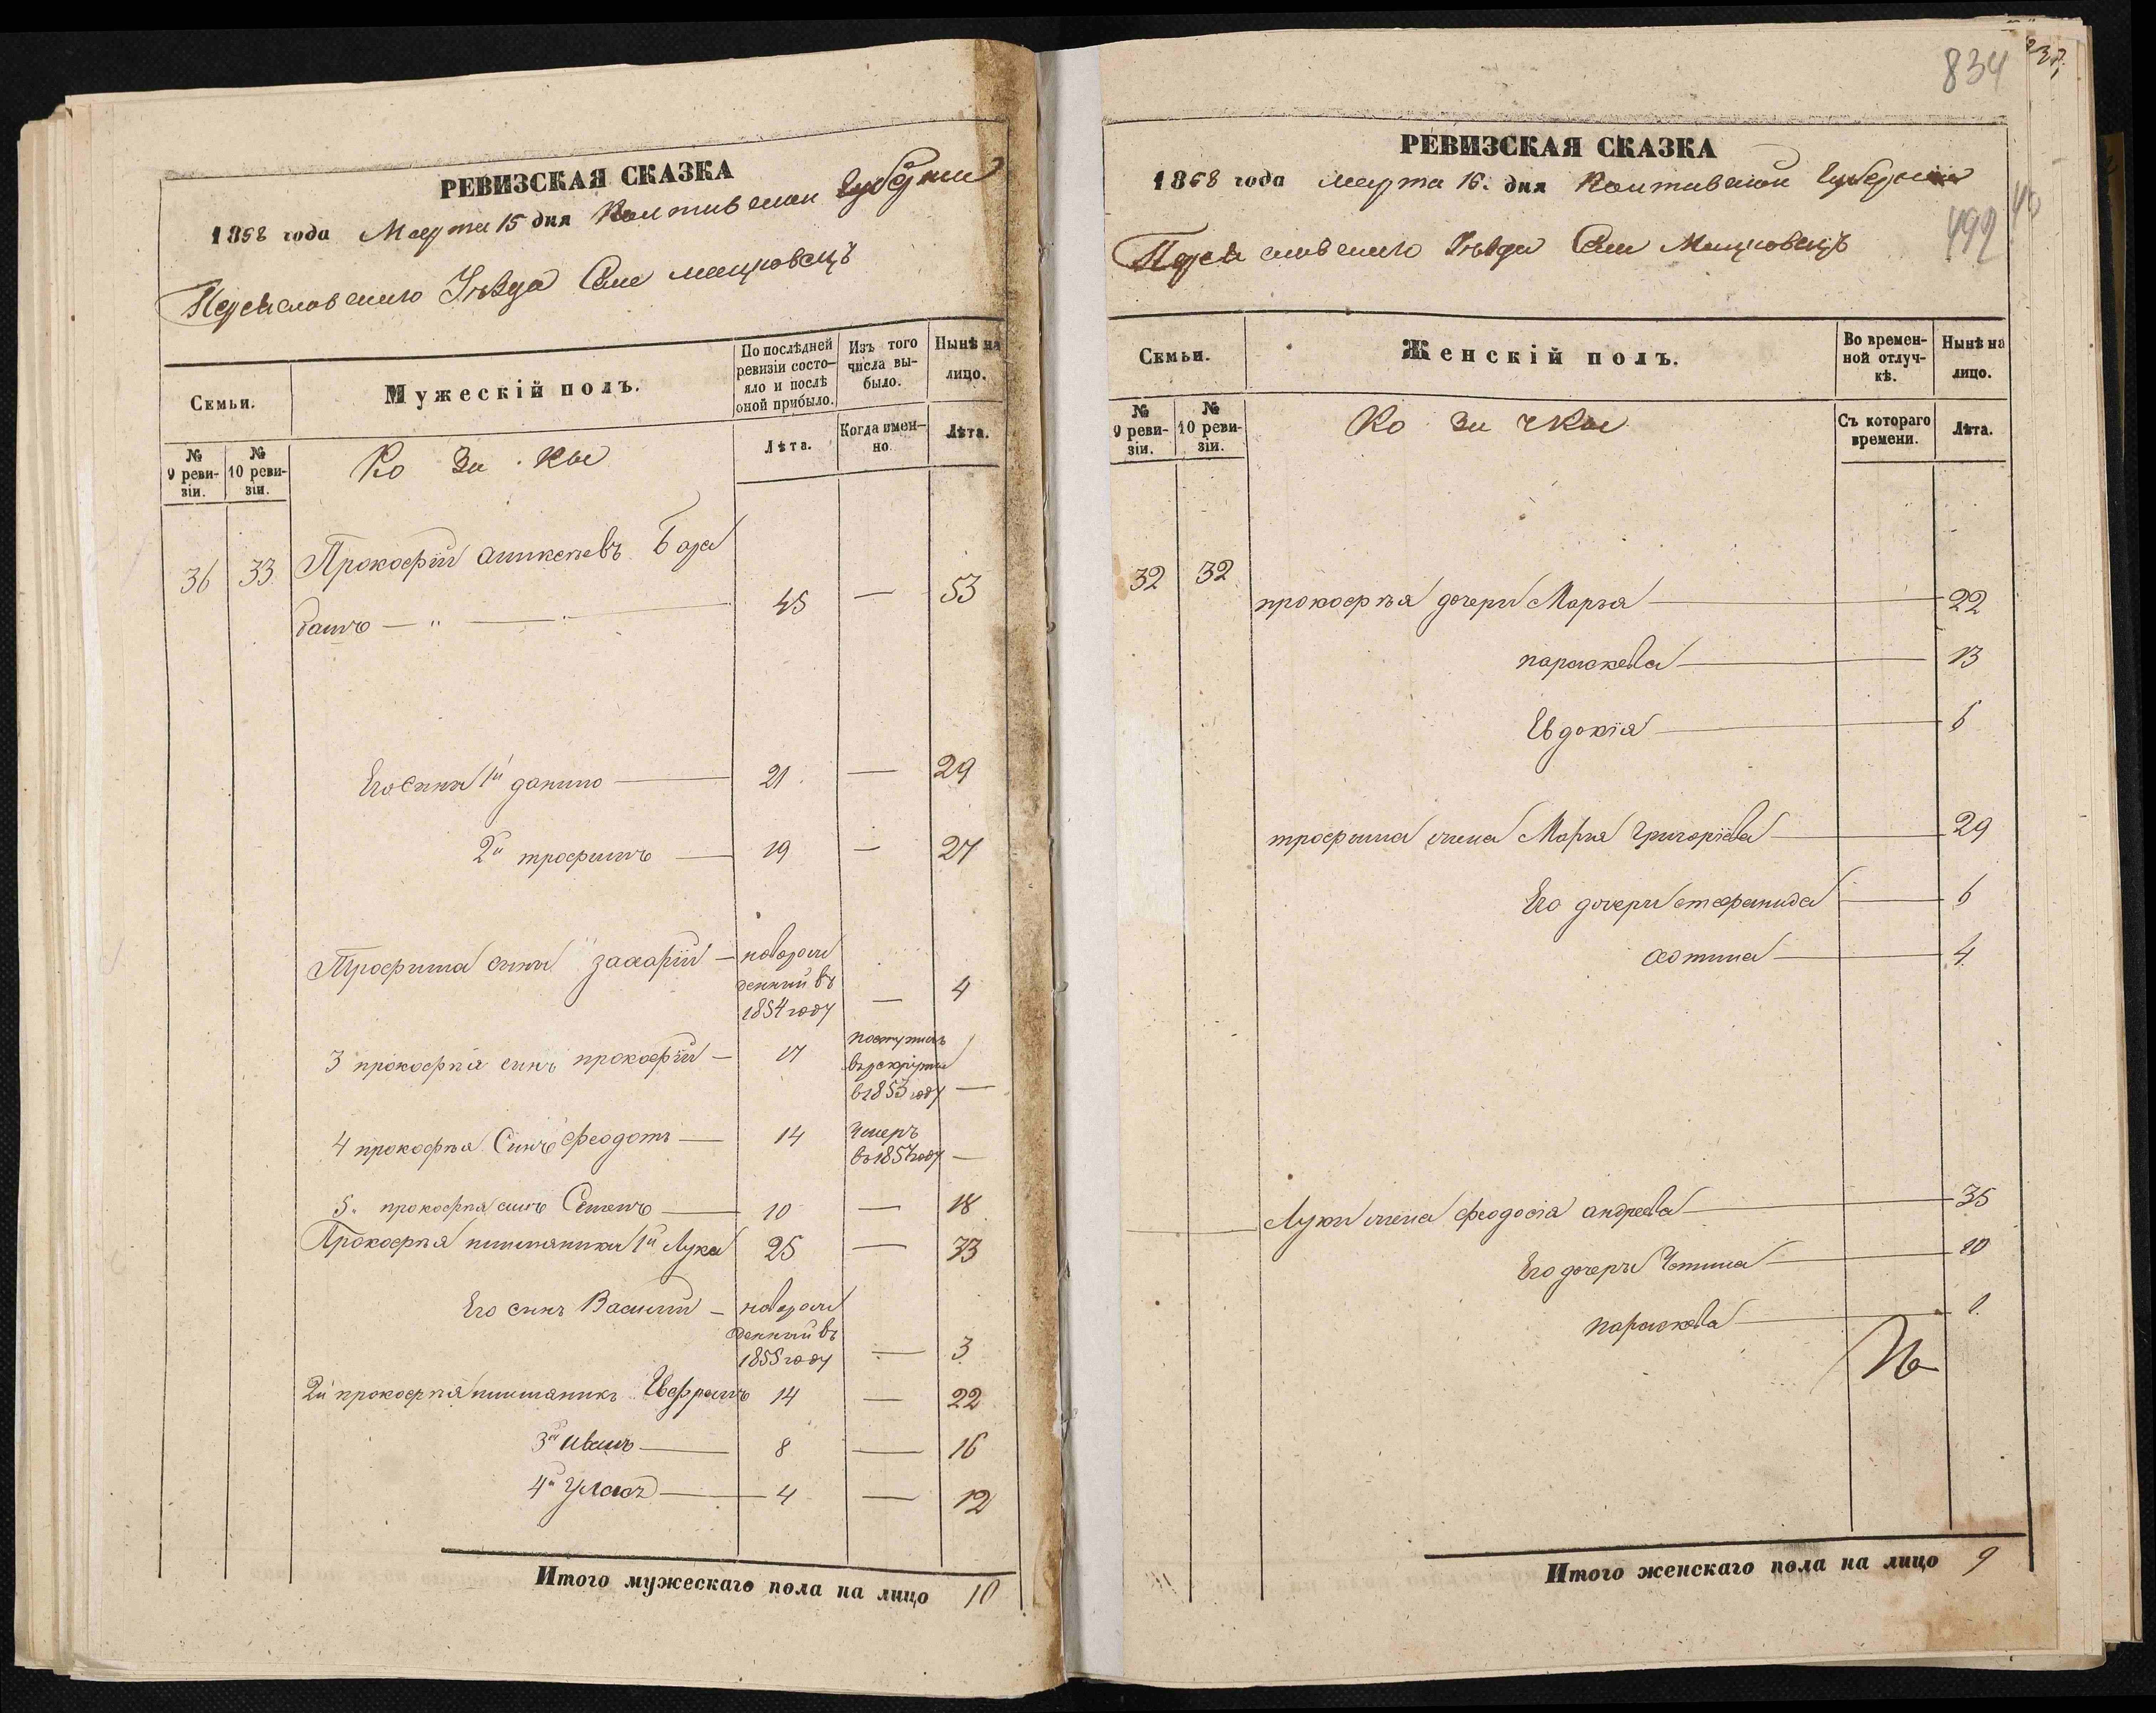 РЕВИЗСКАЯ СКАЗКА
1858 года Марта 15 дня Полтавской Губернии
Переяславского Уѣзда Села мацковецъ
Семьи.
Мужескій полъ.
По послѣдней ревизіи состо-
яло и послѣ
оной прибыло.
Изъ того
числа вы-
было.
Нынѣ на
лицо.
№
9 реви-
зіи.
№
10 реви-
зіи.
Ко за ки
Лѣта.
Когда имен-
но.
Лѣта.
36 33 Прокофій Бара
банъ 45 — 53
Его сины 1й данило 21 — 29
2й трофимъ 19 — 27
Трофима сины захарій — новорож
денный въ
1854 году — 4
3 прокофія синъ прокофій — 17 поступилъ
въ рекруты
в 1853 году —
4 прокофія Синъ феодотъ — 14 Умеръ
въ 1857 году —
5. прокофія синъ Семенъ 10 — 18
Прокофія племяники 1й Лука 25 — 33
Его синъ Василий — новорож
денный въ
1855 году — 3
2й прокофія племяникъ Ефрамъ 14 — 22
3й иванъ 8 — 16
4й Уласъ 4 — 12
Итого мужескаго пола на лицо 10
834
РЕВИЗСКАЯ СКАЗКА
1858 года марта 16. дня Полтавской Губернии
499
Переяславского Уѣзда Села Мацковецъ
Семьи.
Женскій полъ.
Во времен-
ной отлуч-
кѣ.
Нынѣ на
лицо.
№
9 реви-
зіи.
№
10 реви-
зіи.
Ко за чки
Съ котораго
времени.
Лѣта.
32 32 прокофѣя дочери Марѣя 22
параскева 13
Евдокія 6
трофима жена Марѣя Григоріева 29
Его дочери стефанида 6
хотина 4
Луки жена феодосія андреева 35
Его дочеры Устина 10
параскева 1
Итого женскаго пола на лицо 9